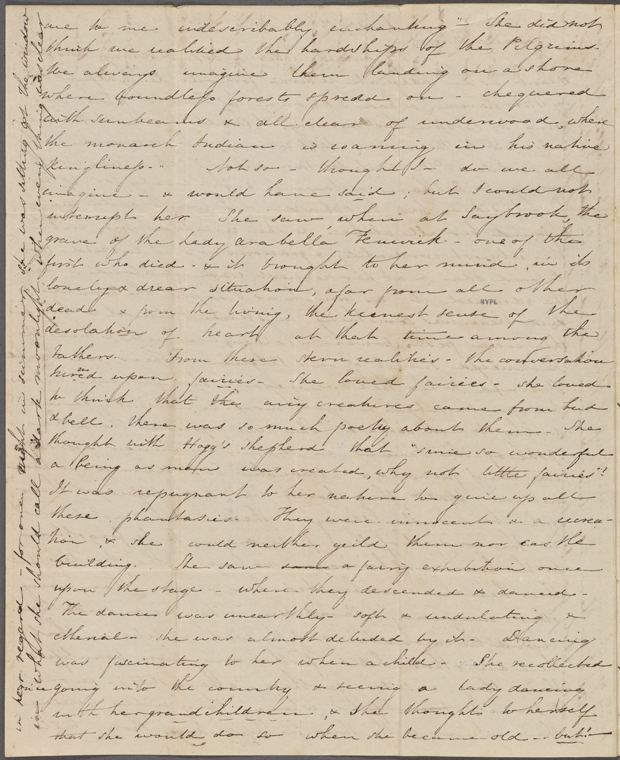 are to me indescribably enchanting" - She did not
think we realized the hardships of the Pilgrims.
We always imagine them landing on a shore
where boundless forests spread on - chequered
with sunbeams & all clear of underwood, where
the monarch Indian is roaming in his native
kingliness." Not so - thought I - do we all
imagine - & would have said; but I could not
interrupt her. She saw when at Saybrook, the
grave of the Lady Arabella Fenwick - one of the
first who died - & it brought to her mind, in its
lonely & drear situation, afar from all other
dead & from the living, the keenest sense of the
desolation of heart at that time among the
fathers. From these stern realities - the conversation
turned upon fairies - She loved fairies - she loved
to think that the airy creatures came from bud
& bell, there was so much poetry about them. She
thought with Hogg's shepherd that "since so wonderful
a being as man was created, why not little fairies"!
It was repugnant to her nature to give up all
these phantasies. They were innocent as a
tion, & she could neither yield them nor castle
building. She saw a fairy exhibition once
upon the stage - where they descended & danced -
The dance was unearthly - soft & undulating &
etherial - she was almost deluded by it. Dancing
was fascinating to her when a child - She recollected
going into the country & seeing a lady dancing
with her grandchildren, & she thought to herself
that she would do so when she became old - but!
in her regard - for one night in summer, she was sitting at the window
in what she should call a dark moonlight, when every thing was clear
NYPL